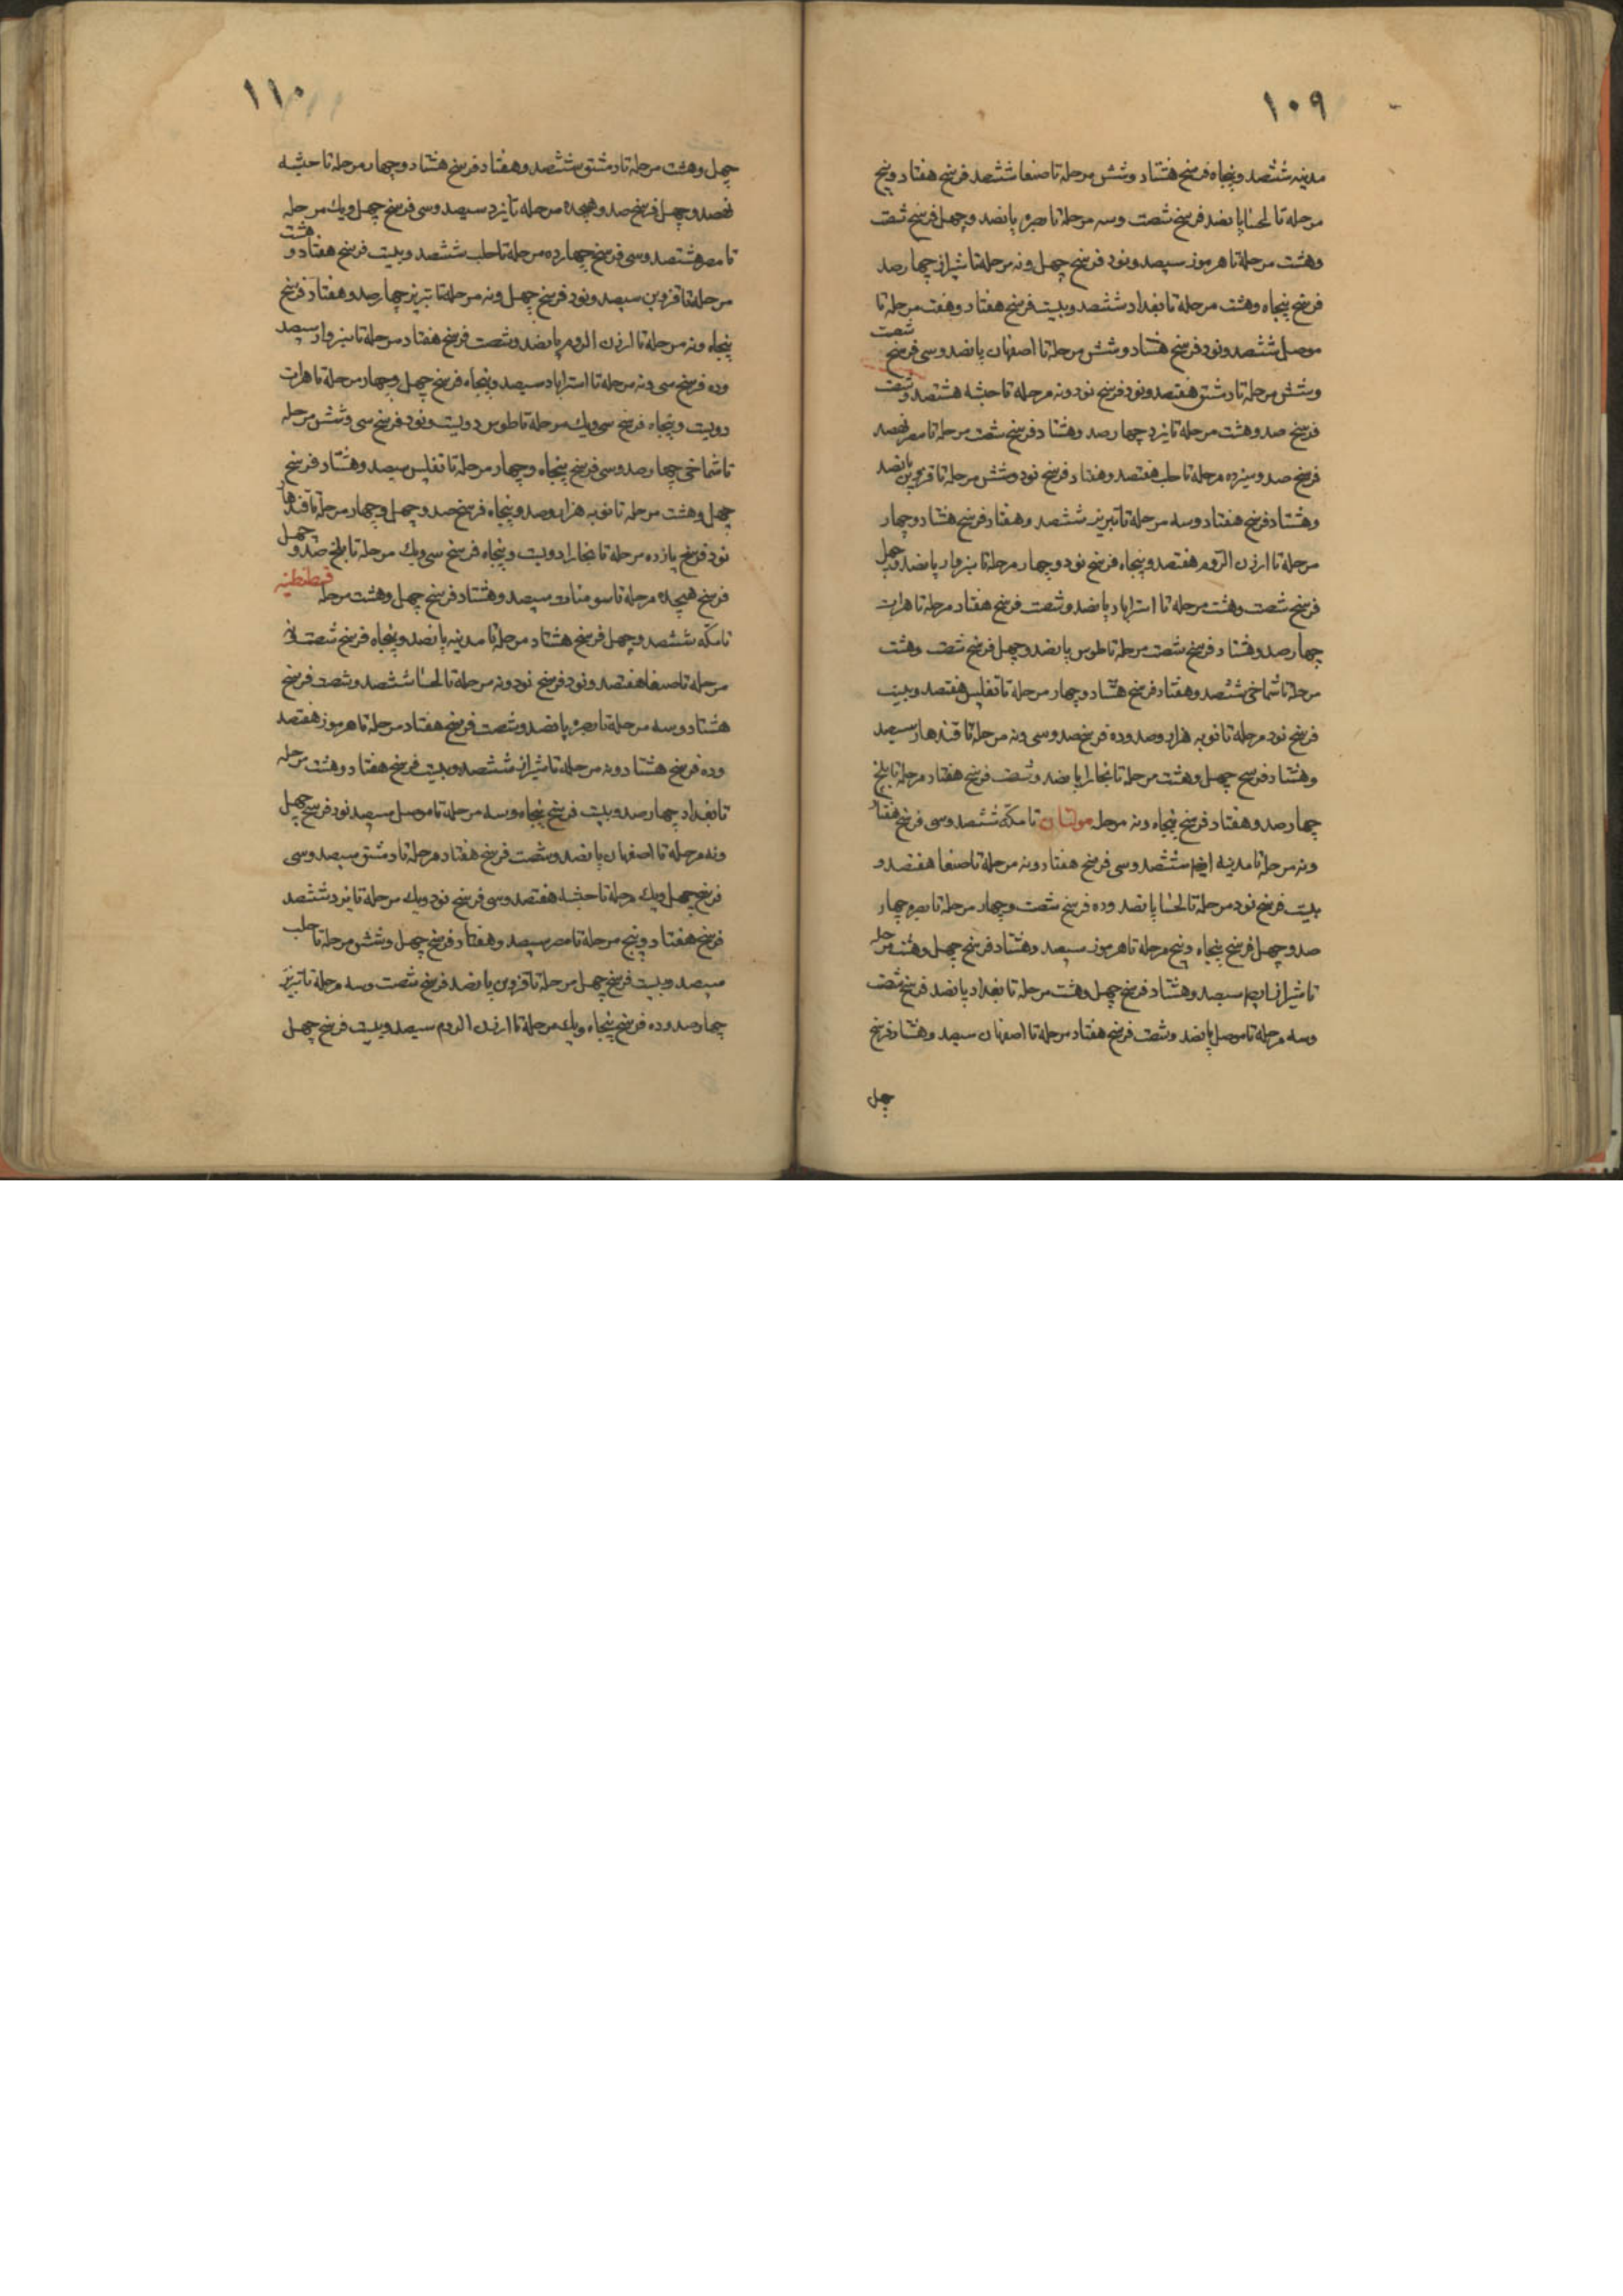 ۱۰۹
مدینه ششصد و پنجاه فرسخ هشتاد و شش مرحله تا صنعا ششصد فرسخ هفتاد و پنج
مرحله تا لحسا پانصد فرسخ شصت و سه مرحله تا بصره پانصد و چهل فرسخ شصت
و هشت مرحله تا هرموز سیصد و نود فرسخ چهل و نه مرحله تا شیراز چهارصد
فرسخ پنجاه و هشت مرحله تا بغداد ششصد و بیست فرسخ هفتاد و هفت مرحله تا
موصل ششصد و نود فرسخ هشتاد و شش مرحله تا اصفهان پانصد و سی فرسخ شصت
و شش مرحله تا دمشق هفتصد و نود فرسخ نود و نه مرحله تا حبشه هشتصد و شصت
فرسخ صد و هشت مرحله تا یزد چهارصد و هشتاد فرسخ شصت مرحله تا مصر نهصد
فرسخ صد و سیزده مرحله تا حلب هفتصد و هفتاد فرسخ نود و شش مرحله تا قزوین پانصد
و هشتاد فرسخ هفتاد و سه مرحله تا تبریز ششصد و هفتاد فرسخ هشتاد و چهار
مرحله تا ارزن الروم هفتصد و پنجاه فرسخ نود و چهار مرحله تا سبزوار پانصد و چهل
فرسخ شصت و هشت مرحله تا استراباد پانصد و شصت فرسخ هفتاد مرحله تا هرات
چهارصد و هشتاد فرسخ شصت مرحله تا طوس پانصد و چهل فرسخ شصت و هشت
مرحله تا شماخی ششصد و هفتاد فرسخ هشتاد و چهار مرحله تا تفلیس هفتصد و بیست
فرسخ نود مرحله تا نوبه هزار و صد و ده فرسخ صد و سی و نه مرحله تا قندهار سیصد
و هشتاد فرسخ چهل و هشت مرحله تا بخارا پانصد و شصت فرسخ هفتاد مرحله تا بلخ
چهارصد و هفتاد فرسخ پنجاه و نه مرحله مولتان تا مکّه ششصد و سی فرسخ هفتاد
و نه مرحله تا مدینه ایضا ششصد و سی فرسخ هفتاد و نه مرحله تا صنعا هفتصد و
بیست فرسخ نود مرحله تا لحسا پانصد و ده فرسخ شصت و چهار مرحله تا بصره چهار
صد و چهل فرسخ پنجاه و پنج مرحله تا هرموز سیصد و هشتاد فرسخ چهل و هشت مرحله
تا شیراز سیصد و هشتاد فرسخ چهل و هشت مرحله تا بغداد پانصد فرسخ شصت
و سه مرحله تا موصل پانصد و شصت فرسخ هفتاد مرحله تا اصفهان سیصد و هشتاد فرسخ
چهل
۱۱۰
چهل و هشت مرحله تا دمشق ششصد و هفتاد فرسخ هشتاد و چهار مرحله تا حبشه
نهصد و چهل فرسخ صد و هیجده مرحله تا یزد سیصد و سی فرسخ چهل و یک مرحله
تا مصر هشتصد و سی فرسخ چهارده مرحله تا حلب ششصد و بیست فرسخ هفتاد و هشت
مرحله تا قزوین سیصد و نود فرسخ چهل و نه مرحله تا تبریز چهارصد و هفتاد فرسخ
پنجاه و نه مرحله تا ارزن الروم پانصد و شصت فرسخ هفتاد مرحله تا سبزوار سیصد
و ده فرسخ سی و نه مرحله تا استراباد سیصد و پنجاه فرسخ چهل و چهار مرحله تا هرات
دویست و پنجاه فرسخ سی و یک مرحله تا طوس دویست و نود فرسخ سی و شش مرحله
تا شماخی چهارصد و سی فرسخ پنجاه و چهار مرحله تا تفلیس سیصد و هشتاد فرسخ
چهل و هشت مرحله تا نوبه هزار و صد و پنجاه فرسخ صد و چهل و چهار مرحله تا قندهار
نود فرسخ یازده مرحله تا بخارا دویست و پنجاه فرسخ سی و یک مرحله تا بلخ صد و چهل
فرسخ هیجده مرحله تا سومنات سیصد و هشتاد فرسخ چهل و هشت مرحله قسطنطنیه
تا مکّه ششصد و چهل فرسخ هشتاد مرحله تا مدینه پانصد و پنجاه فرسخ شصت و نه
مرحله تا صنعا هفتصد و نود فرسخ نود و نه مرحله تا لحسا ششصد و شصت فرسخ
هشتاد و سه مرحله تا بصره پانصد و شصت فرسخ هفتاد مرحله تا هرموز هفتصد
و ده فرسخ هشتاد و نه مرحله تا شیراز ششصد و بیست فرسخ هفتاد و هشت مرحله
تا بغداد چهارصد و بیست فرسخ پنجاه و سه مرحله تا موصل سیصد نود فرسخ چهل
و نه مرحله تا اصفهان پانصد و شصت فرسخ هفتاد مرحله تا دمشق سیصد و سی
فرسخ چهل و یک مرحله تا حبشه هفتصد و سی فرسخ نود و یک مرحله تا یزد ششصد
فرسخ هفتاد و پنج مرحله تا مصر سیصد و هفتاد فرسخ چهل و شش مرحله تا حلب
سیصد و بیست فرسخ چهل مرحله تا قزوین پانصد فرسخ شصت و سه مرحله تا تبریز
چهارصد و ده فرسخ پنجاه و یک مرحله تا ارزن الروم سیصد و بیست فرسخ چهل